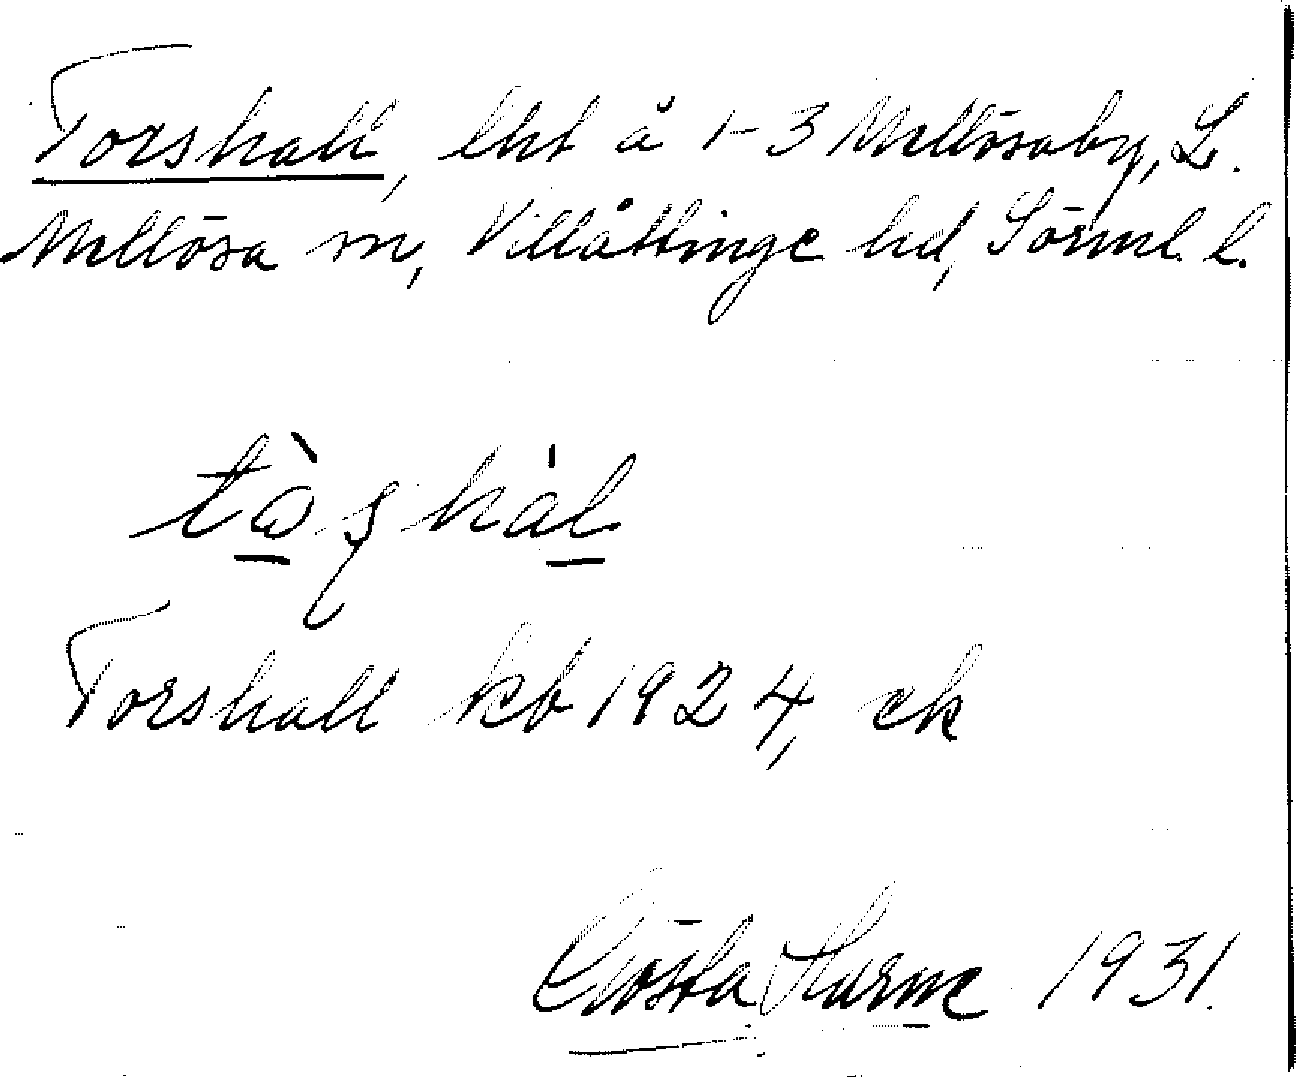 Torshall, lht å 1-3 Mellösaby, L.
Mellösa sn, Villåttinge hd, Sörml. l.
Torshall kb 1924, ek
Gösta 1931.